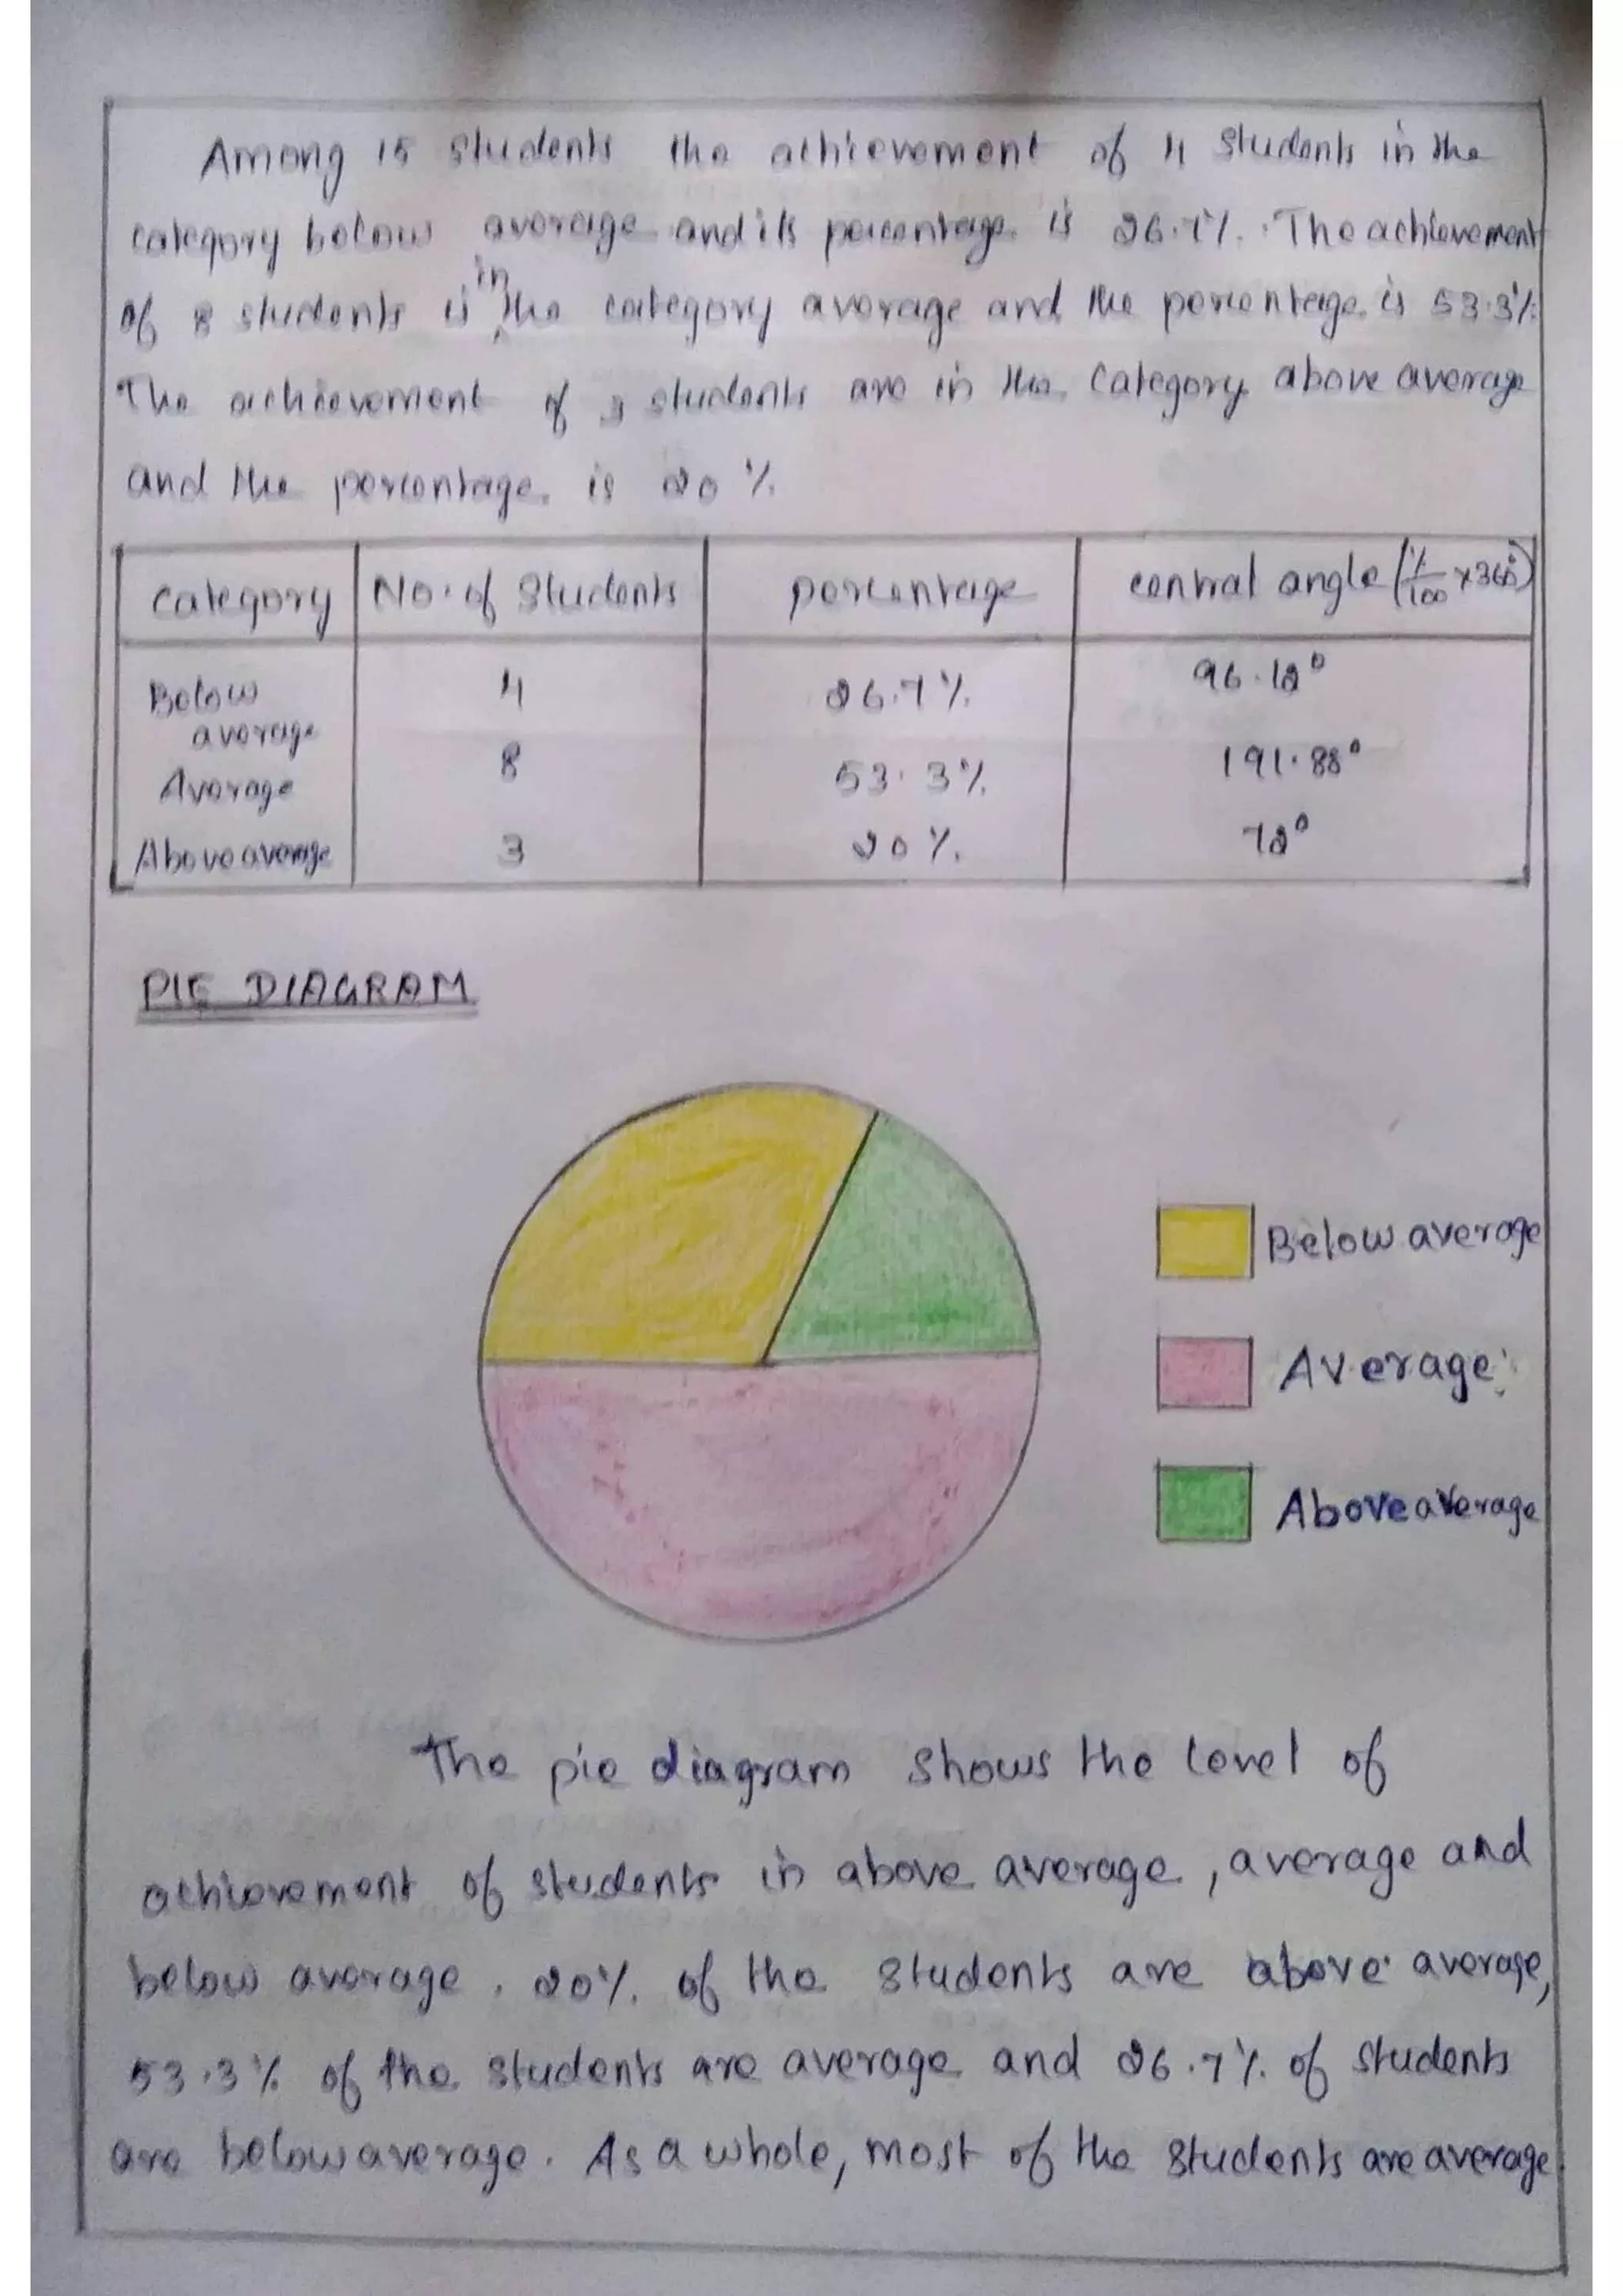 Among 15 students the achievement of 4 students in the
category below average and its percentage is 26.7%. The achievement
of 8 students is in the category average and the percentage is 53.3%
The achievement of 3 students are in the category above average
and the percentage is 20%
Category No. of Students percentage central angle (%/100 x 360°)
Below average 4 26.7% 96.12°
Average 8 53.3% 191.88°
Above average 3 20% 72°
PIE DIAGRAM
Below average
Average
Above average
The pie diagram shows the level of
achievement of students in above average, average and
below average. 20% of the students are above average,
53.3% of the students are average and 26.7% of students
are below average. As a whole, most of the students are average